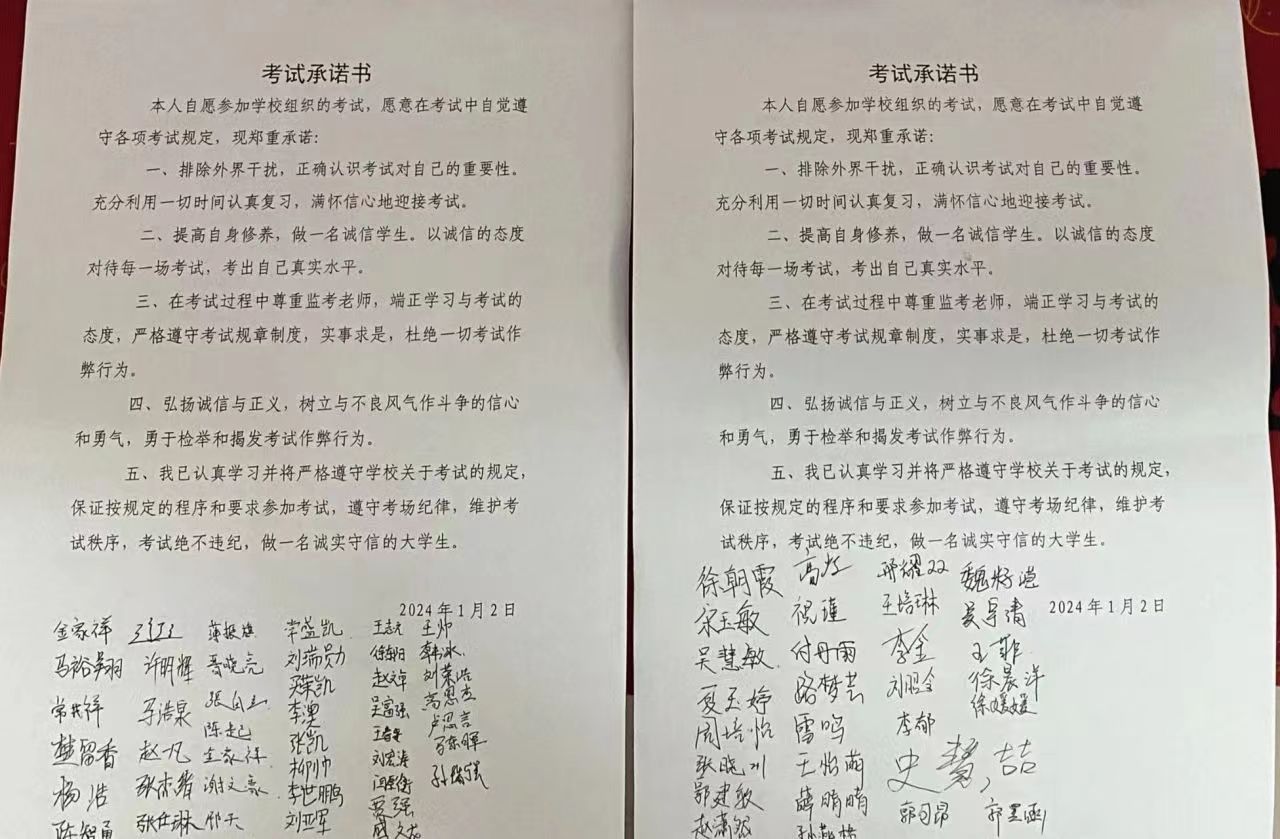 考试承诺书
本人自愿参加学校组织的考试，愿意在考试中自觉遵
守各项考试规定，现郑重承诺：
一、排除外界干扰，正确认识考试对自己的重要性。
充分利用一切时间认真复习，满怀信心地迎接考试。
二、提高自身修养，做一名诚信学生。以诚信的态度
对待每一场考试，考出自己真实水平。
三、在考试过程中尊重监考老师，端正学习与考试的
态度，严格遵守考试规章制度，实事求是，杜绝一切考试作
弊行为。
四、弘扬诚信与正义，树立与不良风气作斗争的信心
和勇气，勇于检举和揭发考试作弊行为。
五、我已认真学习并将严格遵守学校关于考试的规定，
保证按规定的程序和要求参加考试，遵守考场纪律，维护考
试秩序，考试绝不违纪，做一名诚实守信的大学生。
2024年1月2日
金家祥 王志元 王帅
马裕翔羽 许明辉 聂晓亮 刘瑞勋 韩冰
常共祥 马浩泉 刘荣浩
李澳 吴富强 高思杰
楚留香 赵凡 陈志已 张凯 卢思言
金家祥 柳帅 刘宏涛
杨浩 张志锴 谢文豪 李世鹏 孙俊强
陈智勇 张仕琳 邢天 刘亚军 贾强
考试承诺书
本人自愿参加学校组织的考试，愿意在考试中自觉遵
守各项考试规定，现郑重承诺：
一、排除外界干扰，正确认识考试对自己的重要性。
充分利用一切时间认真复习，满怀信心地迎接考试。
二、提高自身修养，做一名诚信学生。以诚信的态度
对待每一场考试，考出自己真实水平。
三、在考试过程中尊重监考老师，端正学习与考试的
态度，严格遵守考试规章制度，实事求是，杜绝一切考试作
弊行为。
四、弘扬诚信与正义，树立与不良风气作斗争的信心
和勇气，勇于检举和揭发考试作弊行为。
五、我已认真学习并将严格遵守学校关于考试的规定，
保证按规定的程序和要求参加考试，遵守考场纪律，维护考
试秩序，考试绝不违纪，做一名诚实守信的大学生。
徐朝霞 邢耀双
宋玉敏 祝瑾 王培琳 2024年1月2日
吴慧敏 付丹雨 李金 王菲
夏玉婷 路梦芸 徐晨洋
徐媛媛
周培怡 雷鸣 李郁
张晓川 王怡萌 史慧喆
鄂建敏 薛晴晴 郭可昂